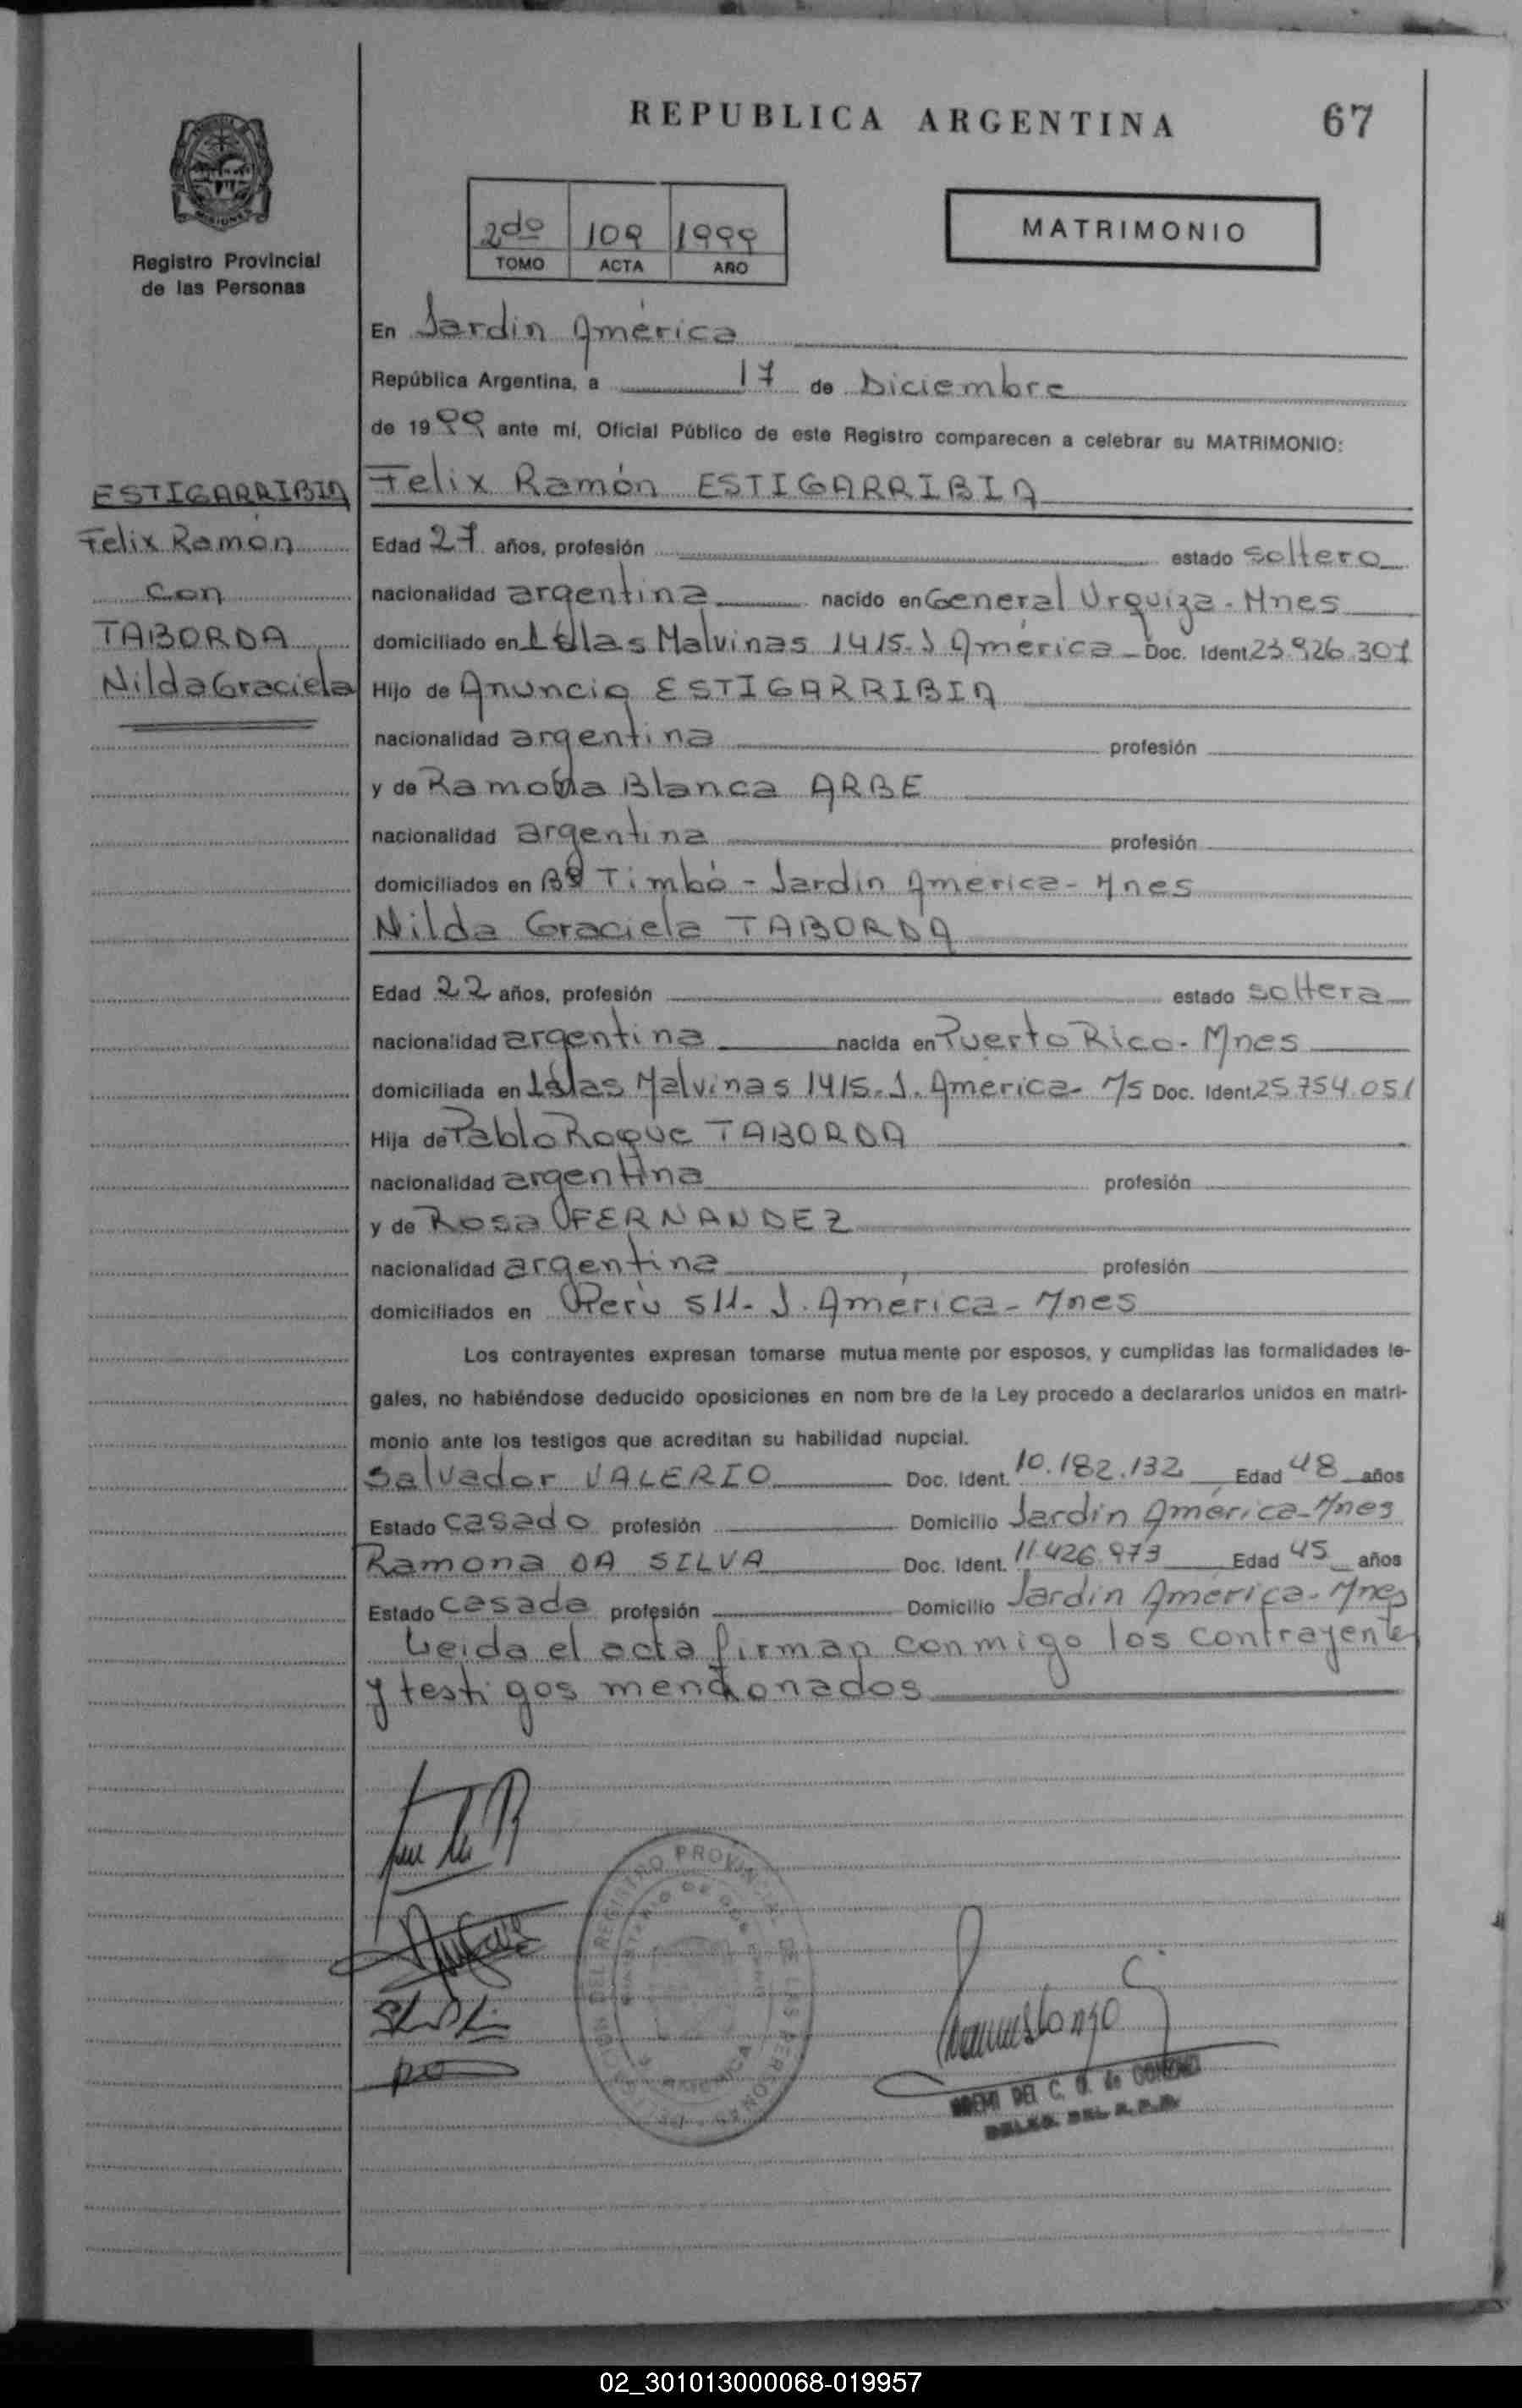 REPUBLICA ARGENTINA
67
2do 109 1999
TOMO ACTA AÑO
MATRIMONIO
MISIONES
Registro Provincial
de las Personas
En Jardin América
República Argentina, a 17 de Diciembre
de 1999 ante mí, Oficial Público de este Registro comparecen a celebrar su MATRIMONIO:
ESTIGARRIBIA
Felix Ramón
con
TABORDA
Nilda Graciela
Felix Ramón ESTIGARRIBIA
Edad 27 años, profesión estado soltero
nacionalidad argentina nacido en General Urquiza - Mnes
domiciliado en Islas Malvinas 1415 - J América - Doc. Ident. 23.926.307
Hijo de Anuncio ESTIGARRIBIA
nacionalidad argentina profesión
y de Ramona Blanca ARBE
nacionalidad argentina profesión
domiciliados en Bº Timbó - Jardin América - Mnes
Nilda Graciela TABORDA
Edad 22 años, profesión estado soltera
nacionalidad argentina nacida en Puerto Rico - Mnes
domiciliada en Islas Malvinas 1415 - J. América - Ms Doc. Ident. 25.754.051
Hija de Pablo Roque TABORDA
nacionalidad argentina profesión
y de Rosa FERNANDEZ
nacionalidad argentina profesión
domiciliados en Perú 511 - J. América - Mnes
Los contrayentes expresan tomarse mutua mente por esposos, y cumplidas las formalidades le-
gales, no habiéndose deducido oposiciones en nom bre de la Ley procedo a declararlos unidos en matri-
monio ante los testigos que acreditan su habilidad nupcial.
Salvador VALERIO Doc. Ident. 10.182.132 Edad 48 años
Estado casado profesión Domicilio Jardin América - Mnes
Ramona DA SILVA Doc. Ident. 11.426.973 Edad 45 años
Estado casada profesión Domicilio Jardin América - Mnes
Leida el acta firman conmigo los contrayentes
y testigos mencionados
02_301013000068-019957